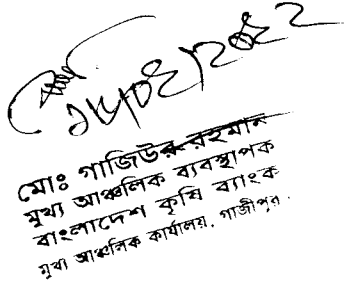 ১৮/০২/২০২২
মোঃ গাজিউর রহমান
মুখ্য আঞ্চলিক ব্যবস্থাপক
বাংলাদেশ কৃষি ব্যাংক
মুখ্য আঞ্চলিক কার্যালয়, গাজীপুর।